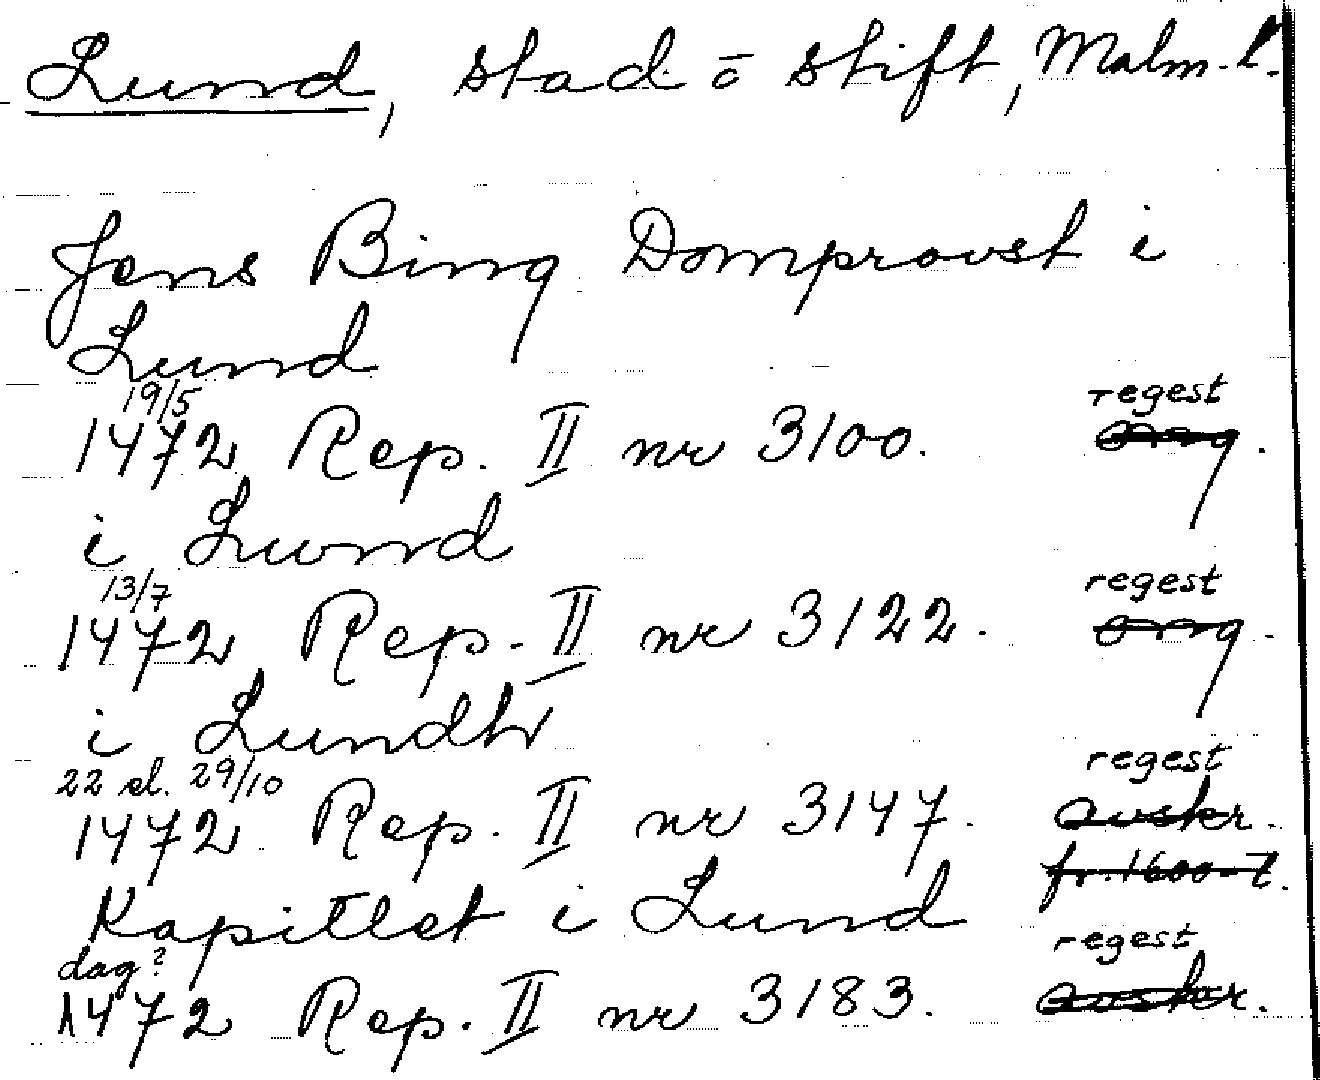 Lund, stad o stift, Malm. l.
Jens Bing Domprovst i
Lund
19/5 regest
1472 Rep. II nr 3100. orig.
i Lund
13/7 regest
1472 Rep. II nr 3122. orig.
i Lundh
22 el. 29/10 regest
1472 Rep. II nr 3147. avskr.
fr. 1600-t.
Kapitlet i Lund
dag? regest
1472 Rep. II nr 3183. avskr.